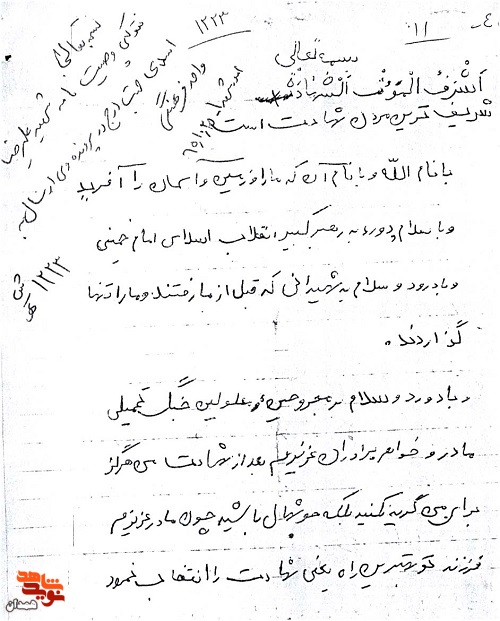 ۱۱
۱۲۲۳
بسمه تعالی
اشرف الموت الشهادة
شریف ترین مردن شهادت است
بسمه تعالی
فتوکپی وصیت نامه شهید علیرضا
اسلامی جهت درج در پرونده وی ارسال
واحد فرهنگی
۱۲۲۳
با نام الله و با نام آن که ما را و زمین و آسمان را آفرید
و با سلام و درود به رهبر کبیر انقلاب اسلامی امام خمینی
و با درود و سلام به شهیدانی که قبل از ما رفتند و ما را تنها
گذاردند.
و با درود و سلام بر مجروحین و معلولین جنگ تحمیلی
مادر و خواهر و برادران عزیزم بعد از شهادت من هرگز
برای من گریه نکنید بلکه خوشهال باشید چون مادر عزیزم
فرزند تو بهترین راه یعنی شهادت را انتخاب نمود
نوید شاهد
همدان